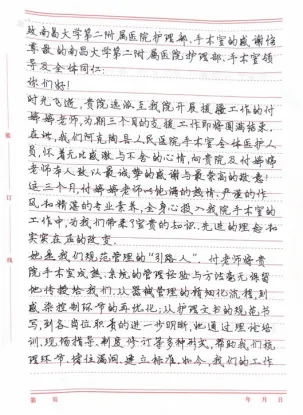 致南昌大学第二附属医院护理部、手术室的感谢信
尊敬的南昌大学第二附属医院护理部、手术室领
导及全体同仁:
你们好!
时光飞逝,贵院选派至我院开展援疆工作的付
婷婷老师,为期三个月的支援工作即将圆满结束。
在此,我们阿克陶县人民医院手术室全体医护人
员,怀着无比感激与不舍的心情,向贵院及付婷婷
老师本人致以最诚挚的感谢与最崇高的敬意!
这三个月,付婷婷老师以饱满的热情、严谨的作
风和精湛的专业素养,全身心投入我院手术室的
工作中,为我们带来了宝贵的知识、先进的理念和
实实在在的改变。
她是我们规范管理的“引路人”。付老师将贵
院手术室成熟、系统的管理经验与方法毫无保留
地传授给我们。从器械管理的精细化流程,到
感染控制环节的再优化;从护理文书的规范书
写,到各岗位职责的进一步明晰,她通过理论培
训、现场指导、制度修订等多种形式,帮助我们梳
理环节、堵住漏洞、建立标准。如今,我们的工作
装
订
线
第 页
年 月 日